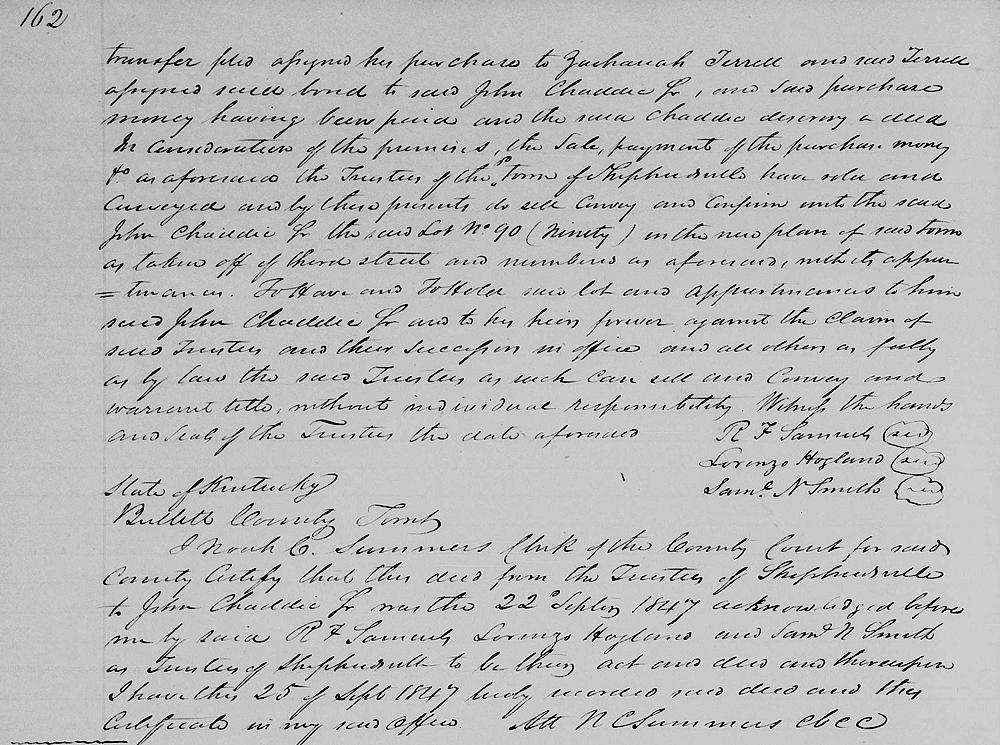 162
transfer &c assigned his purchase to Zachariah Terrell and said Terrell
assigned said bond to said John Chaddic Jr, and said purchase
money having been paid and the said Chaddic desiring a deed
In Consideration of the premises, the Sale, payment of the purchase money
&c as aforesaid the Trustees of the Town of Shepherdsville have sold and
Conveyed and by these presents do sell Convey and Confirm unto the said
John Chaddic Jr the said Lot No 90 (Ninety) in the new plan of said town
as taken off of third street and numbered as aforesaid, with its appur
=tenances. To Have and To Hold said lot and appurtenances to him
said John Chaddic Jr and to his heirs forever against the Claim of
said Trustees and their Successors in office and all others as fully
as by law the said Trustees as such Can sell and Convey and
warrant title, without individual responsibility. Witness the hands
and Seals of the Trustees the date aforesaid
R F Samuels (seal)
Lorenzo Hogland (seal)
Saml N Smith (seal)
State of Kentucky
Bullitt County Towit
I Noah C. Summers Clerk of the County Court for said
County Certify that this deed from the Trustees of Shepherdsville
to John Chaddic Jr was the 22d Septem 1847 acknowledged before
me by said R F Samuels Lorenzo Hogland and Saml N Smith
as Trustees of Shepherdsville to be their act and deed and thereupon
I have this 25 of Sept 1847 truly recorded said deed and this
Certificate in my said office. Att N C Summers cbcc